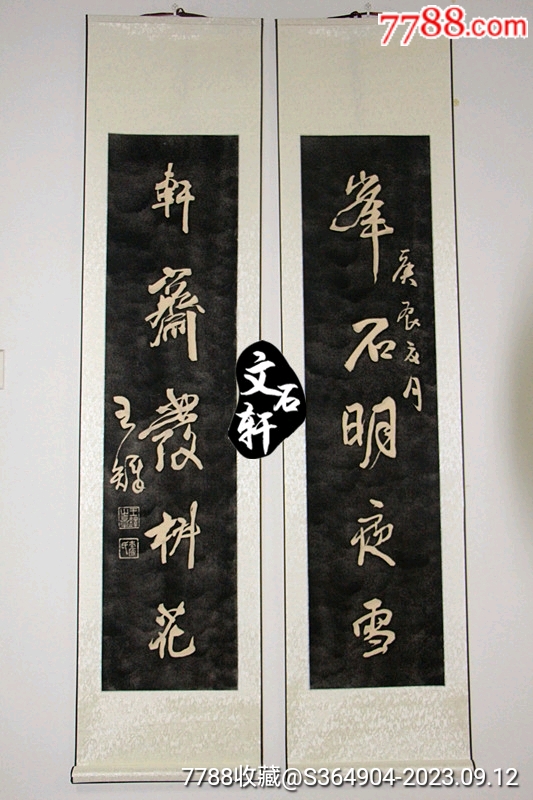 7788.com
峯石明夜雪
庚辰 月
軒齋發 花
王鐸
文石轩
7788收藏@S364904-2023.09.12